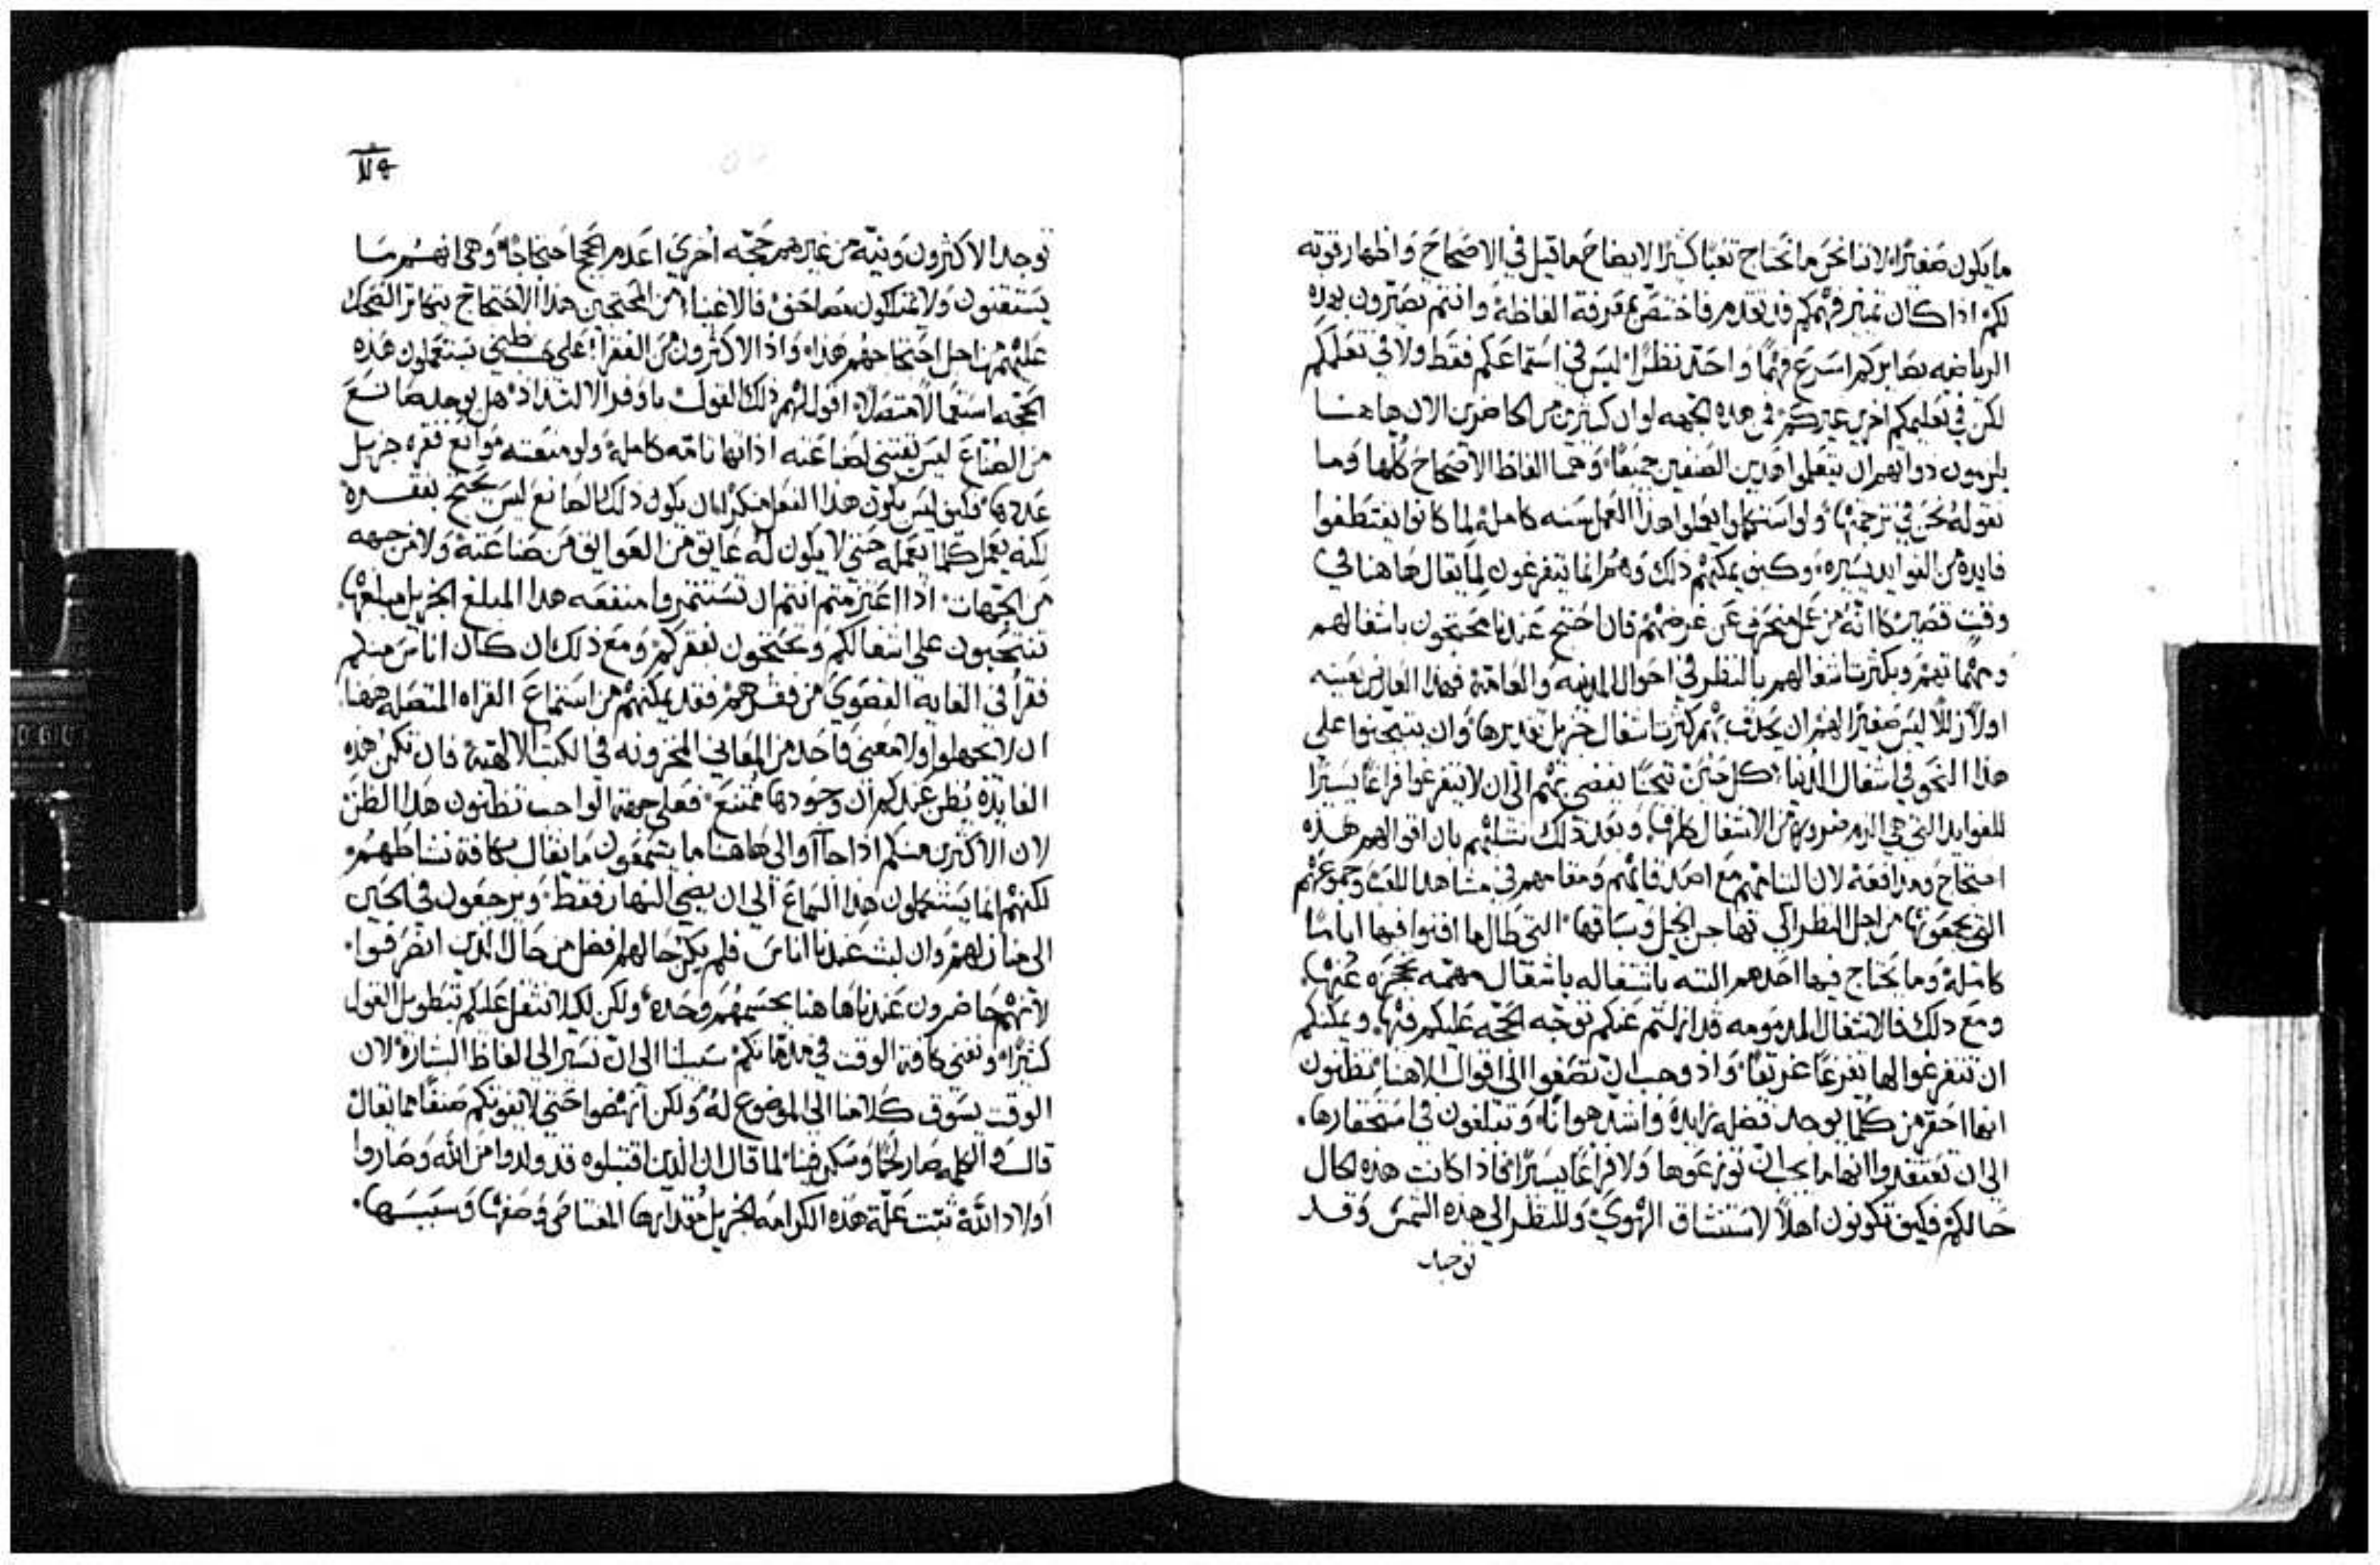 ما يكون صغيرًا لاننا نحن ما نحتاج تعبًا كثيرًا لايضاح ما قيل في الاصحاح واظهار قوته
لكم اذا كان تميز فهمكم قد تقدم فاختص بمعرفة الفاظه وانتم تصيرون بهذه
الرياضه بصايركم اسرع فهمًا واحد نظرًا ليس في استماعكم فقط ولا في تعلمكم
لكن في تعليمكم اخرين غيركم في هذه الجهه لو ان كثيرين من الحاضرين الان هاهنا
يلزمون ذواتهم ان يتعلموا هذين الصنفين جميعًا وهما الفاظ الاصحاح كلها وما
نقوله نحن في ترجمتها ولو استكملوا هذا العمل سنه كاملة لما كانوا يقتطفوا
فايدة من الفوايد يسيره وكيف يمكنهم ذلك وهم انما يتفرغون لما يقال هاهنا في
وقت قصير كانه من عمل منحرف عن غرضهم فان احتج عندنا محتجون باشغالهم
وهمهم وبكثرت اشغالهم بالنظر في احوال المدينه والعامة فهذا العارض بعينه
اولًا زللًا ليس صغيرًا لهم ان كثرت اشغال جزيل تقديرها وان يتبحثوا على
هذا النحو في اشغال الدنيا كل حين بحثًا يفضي بهم الى ان لا يتفرغوا فراغًا يسيرًا
للفوايد التي هي الزم ضرورية من الاشغال كلها وبعد ذلك بان اقوالهم هذه
احتجاج ومدافعة لان مع اصدقائهم ومقامهم في مشاهد اللعب وجموعهم
التي يجمعونها من اجل النظر الى الخيل وسباقها التي طال ما افنوا فيها ايامًا
كاملة وما يحتاج فيها احدهم البته باشتغاله باشغال مهمه تحجزه عنها
ومع ذلك فالاشغال المذمومه قد ازلتم عنكم توجه الحجه عليكم فيها ويمكنكم
ان تتفرغوا لها تفرغًا واذ وجب ان تصغوا الى اقوال الاهنا تظنون
انها احقر من كلما يوجد فضله زايدة واشد هوانًا وتبلغون في استحقارها
الى ان تعتقدوا انها ما يجب ان ولا فراغًا يسيرًا فاذا كانت هذه الحال
حالكم فكيف تكونون اهلًا لاستنشاق الهوي وللنظر الى هذه الشمس وقد
توجد
توجد الاكثرون ونية من غيرهم حجه اخرى اعدم الحجج احتجاجًا وهي انهم ما
يستقنون ولا يمتلكون مصاحف فالاغنيا من المحتجين هذا الاحتجاج الضحك
عليهم من اجل احتجاجهم هذا واذ الاكثرون من الفقرا على ظني يستعملون هذه
الحجه استعمالًا متصلًا اقول لهم ذلك القول باوفر الالتذاذ هل يوجد صانع
من الصناع ليس يقتني لصناعته اداتها تامه كاملة ولو منعته موانع فقره جزيل
عددها وكيف ليس يكون هذا الفعل منكرًا ان يكون ذلك الصانع ليس يحتج بفقره
لكنه يعمل كلما يعمله حتى لا يكون له عايق من العوايق من صناعته ولا من جهه
من الجهات اذا اعتزمتم انتم ان تستثمروا منفعه هذا المبلغ الجزيل مبلغها
تنتحبون على اشغالكم وتحتجون بفقركم ومع ذلك ان كان اناس منكم
فقرا في الغايه القصوي من فقرهم فقد يمكنهم من استماع القراه المتصله ههنا
ان لا يجهلوا ولا معنى واحد من المعاني المخزونه في الكتب الالهية فان تكن هذه
الفايدة يظن عندكم ان وجودها ممتنع فعلى جهة الواجب تظنون هذا الظن
لان الاكثرين منكم اذا جاآوا الى هاهنا ما يسمعون ما يقال بكافة نشاطهم
لكنهم انما يستعملون هذا السماع الى ان يمضي النهار فقط ويرجعون في الحين
الى منازلهم وان لبث عندنا اناس فلم يكن حالهم افضل من حال الذين انصرفوا
لانهم حاضرون عندنا هاهنا بجسمهم وحده ولكن لكيلا نثقل عليكم بتطويل القول
كثيرًا ونفني كافة الوقت في مذماتكم سبيلنا الى ان نسير الى الفاظ البشارة لان
الوقت يسوق كلامنا الى الموضوع له ولكن انهضوا حتى لا يفوتكم صنفًا مما يقال
قال والكلمه صار لحمًا وسكن فينا لما قال ان الذين اقتبلوه قد ولدوا من الله وصاروا
اولاد الله ثبت علة هذه الكرامه الجزيل مقدارها المعتاص وصفها وسببها